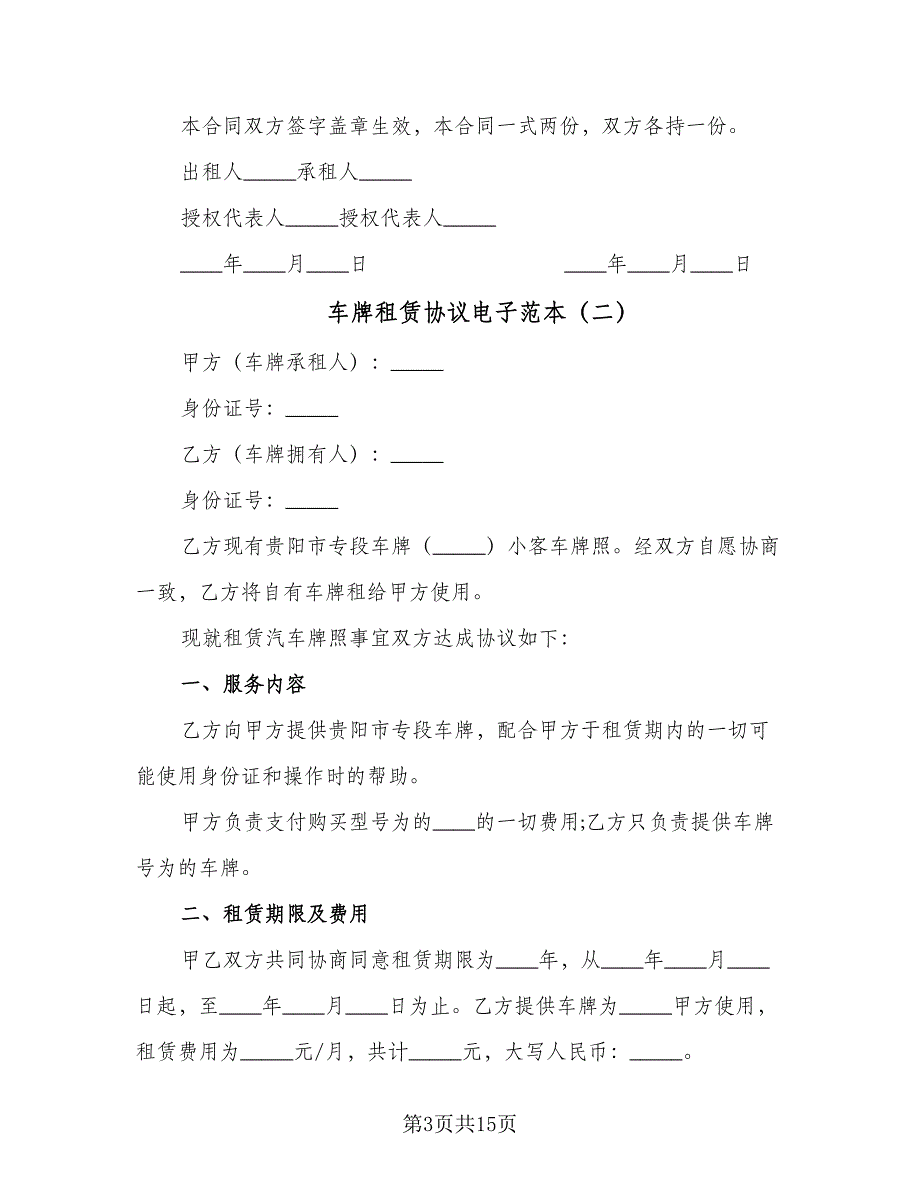 本合同双方签字盖章生效，本合同一式两份，双方各持一份。
出租人_____承租人_____
授权代表人_____授权代表人_____
____年____月____日 ____年____月____日
车牌租赁协议电子范本（二）
甲方（车牌承租人）：_____
身份证号：_____
乙方（车牌拥有人）：_____
身份证号：_____
乙方现有贵阳市专段车牌（_____）小客车牌照。经双方自愿协商
一致，乙方将自有车牌租给甲方使用。
现就租赁汽车牌照事宜双方达成协议如下：
一、服务内容
乙方向甲方提供贵阳市专段车牌，配合甲方于租赁期内的一切可
能使用身份证和操作时的帮助。
甲方负责支付购买型号为的____的一切费用;乙方只负责提供车牌
号为的车牌。
二、租赁期限及费用
甲乙双方共同协商同意租赁期限为____年，从____年____月____
日起，至____年____月____日为止。乙方提供车牌为_____甲方使用，
租赁费用为_____元/月，共计_____元，大写人民币：_____。
第3页共15页